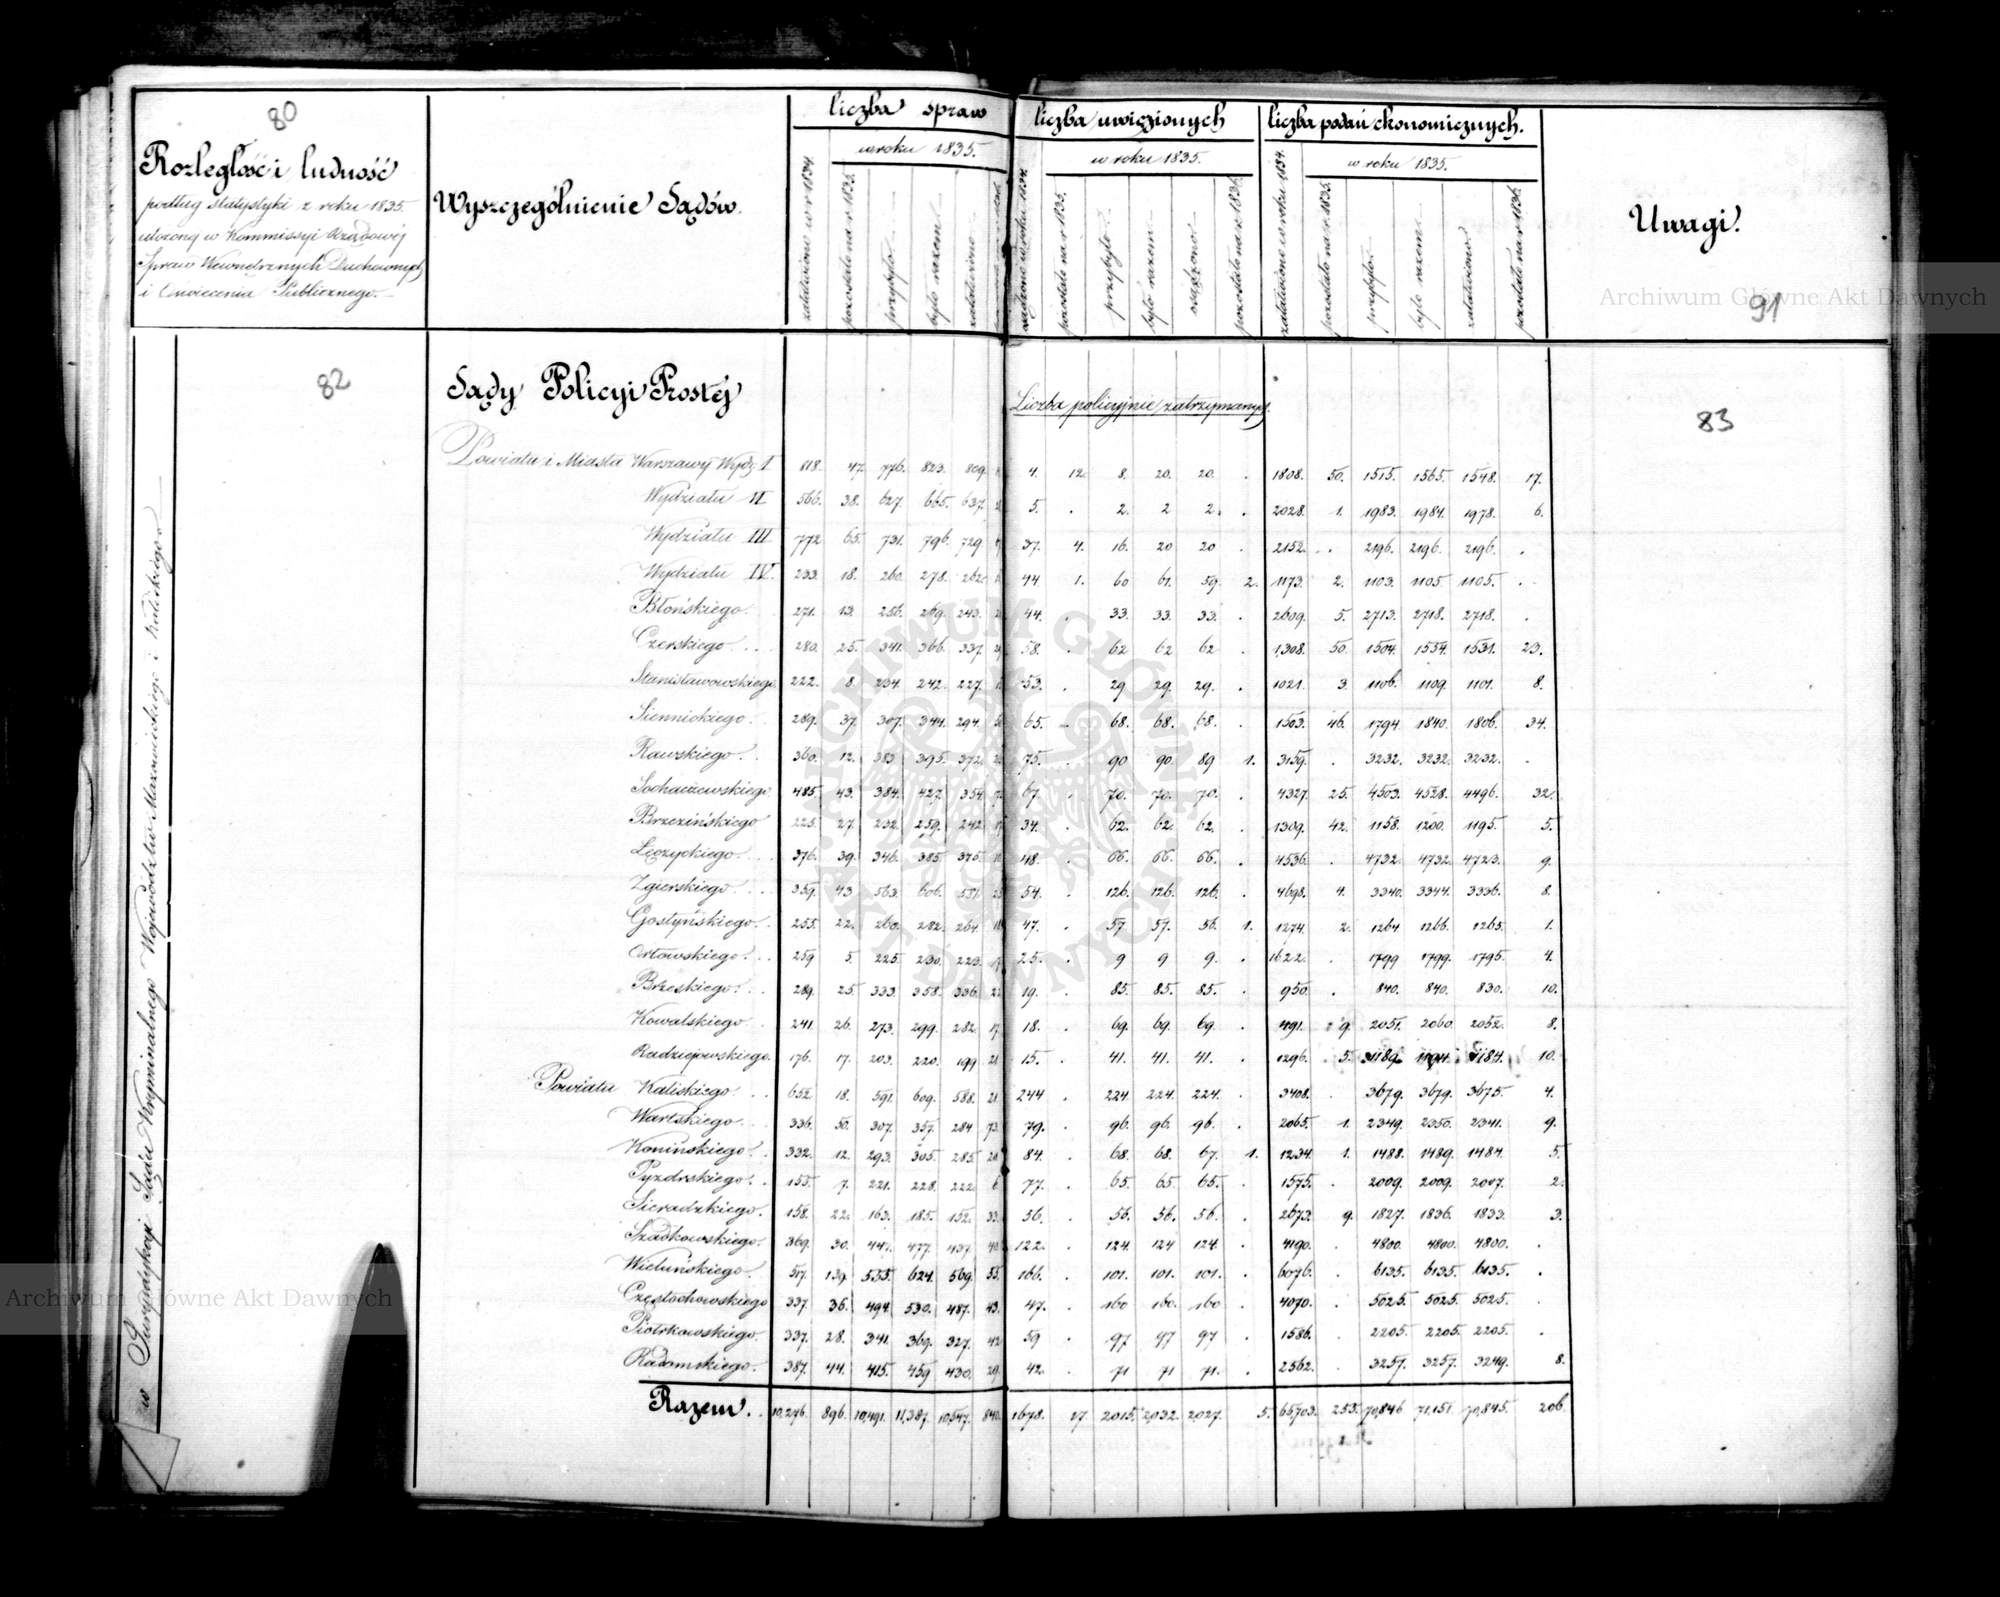 80
Rozległość i ludność
podług statystyki z roku 1835.
ułożonej w Kommissyi Rządowej
Spraw Wewnętrznych Duchownych
i Oświecenia Publicznego.
Wyszczególnienie Sądów.
liczba spraw
załatwiono w r 1834.
w roku 1835.
pozostało na r 1835.
przybyło
było razem
załatwiono
liczba uwięzionych
w roku 1835.
pozostało na r 1835.
przybyło.
było razem
osądzono
pozostało na r 1836.
liczba podań ekonomicznych.
załatwiono w roku 1834.
w roku 1835.
pozostało na r 1835.
przybyło.
było razem
załatwiono
pozostało na r 1836.
Uwagi.
91
82
83
w Juryzdykcyi Sądu Kryminalnego Województw Mazowieckiego i Kaliskiego
Sądy Policyi Prostej
Liczba policyjnie zatrzymanych.
Powiatu i Miasta Warszawy Wydz: I 818. 47. 776. 823. 809. 4. 12. 8. 20. 20. . 1808. 50. 1515. 1565. 1548. 17.
Wydziału II 566. 38. 627. 665. 637. 5. . 2. 2 2. . 2028. 1. 1983. 1984. 1978. 6.
Wydziału III 772 65. 731. 796. 729 37. 4. 16. 20 20 . 2152. . 2196. 2196. 2196. .
Wydziału IV. 233. 18. 260. 278. 262. 44 1. 60 61. 59. 2. 1173. 2. 1103. 1105 1105. .
Błońskiego. 271. 13. 256. 269. 243. 44. . 33. 33. 33. . 2609. 5. 2713. 2718. 2718. .
Czerskiego. 280. 25. 341. 366. 337. 58. . 62 62 62 . 1308. 50. 1504. 1554. 1531. 23.
Stanisławowskiego 222. 8. 234. 242. 227. 53. . 29 29. 29. . 1021. 3. 1106. 1109. 1101. 8.
Siennickiego. 289. 37. 307. 344. 294. 65. 68. 68. 68. . 1503. 46. 1794 1840. 1806. 34.
Rawskiego. 360. 12. 383. 395. 372. 75. . 90 90. 89 1. 3159. . 3232. 3232. 3232. .
Sochaczewskiego 485. 43. 384. 427. 354. 67. . 70. 70. 70. . 4327. 25. 4503. 4528. 4496. 32.
Brzezińskiego 225. 27. 232. 259. 242. 34. . 62. 62. 62. . 1309. 42. 1158. 1200. 1195. 5.
Łęczyckiego. 376. 39. 346. 385. 375. 48. . 66. 66. 66. . 4536. . 4732. 4732. 4723. 9.
Zgierskiego. 359. 43 563. 606. 54. . 126. 126. 126. . 4698. 4. 3340. 3344. 3336. 8.
Gostyńskiego. 255. 22. 260. 282. 264. 47. . 57. 57. 56. 1. 1274. 2. 1264 1266. 1265. 1.
Orłowskiego. 259 5. 225 230. 223. 25. . 9 9 9. . 1622. . 1799 1799. 1795. 4.
Brzeskiego. 289. 25. 333. 358. 336. 22 19. . 85. 85. 85. . 950. . 840. 840. 830. 10.
Kowalskiego 241. 26. 273. 299. 282. 17. 18. . 69. 69. 69. . 491. 9. 2051. 2060. 2052. 8.
Radziejowskiego. 176. 17. 203. 220. 199 21 15. . 41. 41. 41. . 1296. 5. 1189. 1194. 1184. 10.
Powiatu Kaliskiego 652 18. 591. 609. 588. 21 244 . 224. 224. 224. . 3408. . 3679. 3679. 3675. 4.
Wartskiego 336. 50. 307. 357. 284 73. 79. . 96. 96. 96. . 2065. 1. 2349. 2350. 2341. 9.
Konińskiego 332. 12. 293. 305. 285. 20 84. . 68. 68. 67. 1. 1234. 1. 1488. 1489. 1484. 5.
Pyzdrskiego. 155. 7. 221. 228. 222. 6 77. . 65. 65 65. . 1575. . 2009. 2009. 2007. 2.
Sieradzkiego. 158. 22. 163. 185. 152. 33. 56. . 56. 56. 56. . 2673. 9. 1827. 1836. 1833. 3.
Szadkowskiego. 369. 30. 447. 477. 437. 40 122. . 124. 124 124 . 4190. . 4800. 4800. 4800. .
Wieluńskiego. 517. 139. 555. 624. 569. 55. 166. . 101. 101. 101. . 6076. . 6135. 6135. 6135. .
Częstochowskiego 337. 36. 494. 530. 487. 43. 47. . 160 160. 160 . 4070. . 5025. 5025. 5025. .
Piotrkowskiego. 337. 28. 341. 369. 327. 42 59 . 97 97 97 . 1586. . 2205. 2205. 2205. .
Radomskiego. 387. 44. 415. 459 430. 29. 42. . 71 71 71. . 2562. . 3257. 3257. 3249. 8.
Razem. 10,276. 896. 10,491. 11,387. 10,547. 840. 1678. 17. 2015. 2,032. 2,027. 5. 65,703. 253. 70,846 71,151. 70,845. 206.
Archiwum Główne Akt Dawnych
Archiwum Główne Akt Dawnych
ARCHIWUM GŁÓWNE AKT DAWNYCH